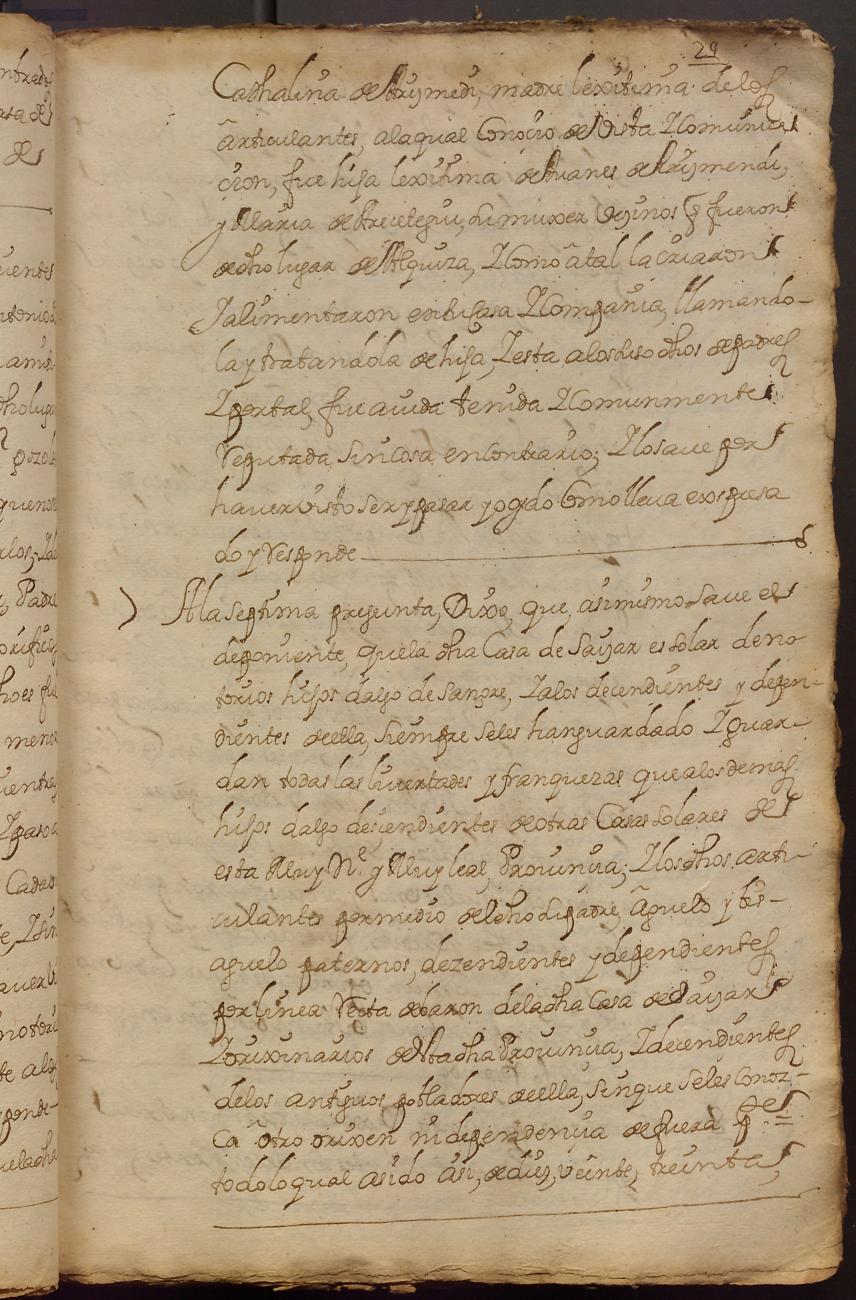 29
Cathalina de Arismendi, madre lexitima de los
articulantes, ala qual Conocio de Vista Y Comunica
cion, fue hija lexitima de Juanes de Arismendi,
y Maria de Areçelegui, su muxer Vezinos q fueron
de dho lugar de Alquiza, Y Como a tal la criaron
Y alimentaron en su Casa Y Compania, llamando-
la y tratandola de hija, Y esta, a los suso dhos de padres
Y por tal, fue auida tenida Y Comunmente
Reputada, sin Cosa en Contrario; Y lo saue por
hauer visto ser y pasar y oydo Como lleua expresa
do y Responde
A la septima pregunta, Dixo, que, asimismo saue el
deponiente, que la dha Casa de Sayar es solar de no
torios hijos dalgo de sangre, Y a los decendientes y depen-
dientes de ella, siempre seles han guardado Y guar-
dan todas las liuertades y franquezas que a los demas
hijos dalgo descendientes de otras Casas solares de
esta Muy N.e y Muy leal, Prouincia; Y los dhos arti-
culantes por medio de el dho su padre, Aguelo y bis-
aguelo paternos, dezendientes y dependientes
por linea Recta de baron de la dha Casa de Sayar
Y orixinarios de esta dha Prouincia, Y decendientes
de los antiguos pobladores de ella, sin que seles Conoz-
Ca otro orixen ni dependencia de fuera
todo lo qual a sido asi, de diez, veinte, treinta,